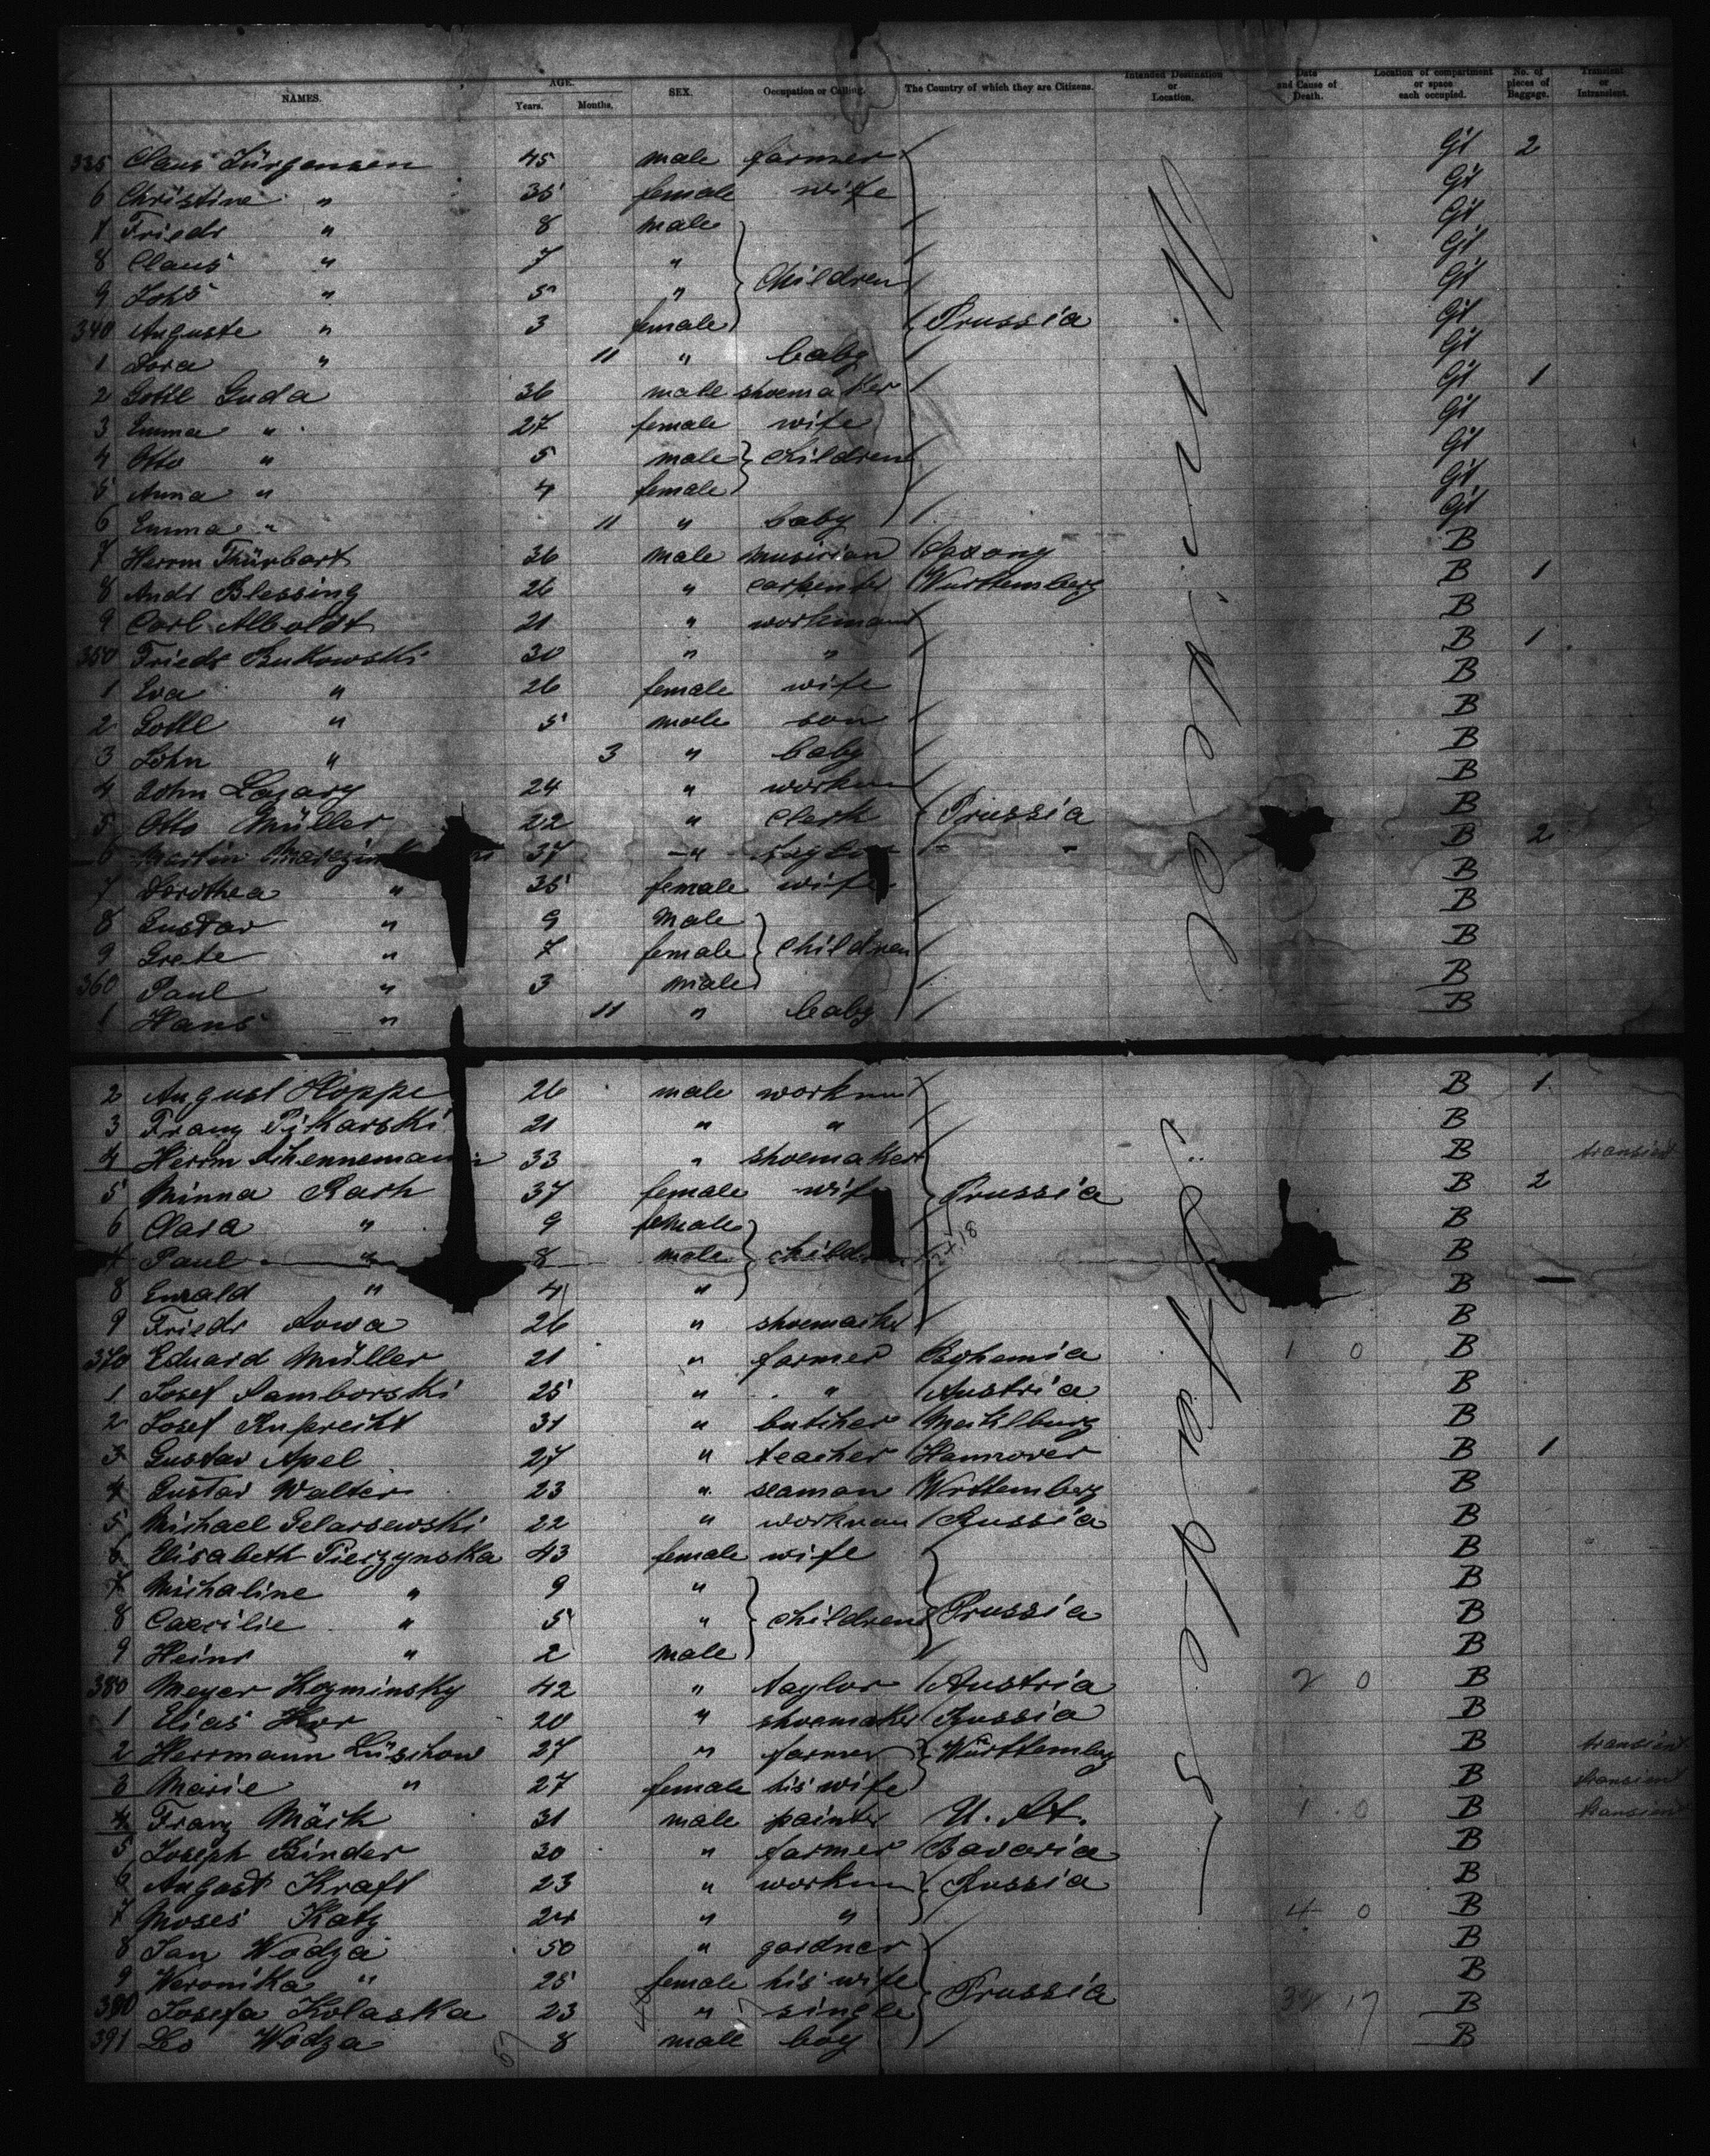 NAMES. AGE. Years. Months. SEX. Occupation or Calling. The Country of which they are Citizens. Intended Destination or Location. Date and Cause of Death. Location of compartment or space each occupied. No. of pieces of Baggage. Transient or Intransient.
335 Claus Jürgensen 45 male farmer Gt 2
6 Christine " 35 female wife Gt
7 Friedr " 8 male Gt
8 Claus " 7 " Children Gt
9 Johs " 5 " Gt
340 Auguste " 3 female Prussia Gt
1 Dora " 11 " baby Gt
2 Gottl Guda 36 male shoemaker Gt 1
3 Emma " 27 female wife Gt
4 Otto " 5 male children Gt
5 Anna " 4 female Gt
6 Emma " 11 " baby Gt
7 Herrm Thürbart 36 male musician Saxony B
8 Andr Blessing 26 " carpenter Wurttemberg B 1
9 Carl Alboldt 21 " workman B
350 Friedr Bukowski 30 " " B 1
1 Eva " 26 female wife B
2 Gottl " 5 male son B
3 John " 3 " baby B
4 John Lazary 24 " workm B
5 Otto Müller 22 " Clerk Prussia B
6 Martin 37 " Taylor B 2
7 Dorothea " 35 female wife B
8 Gustav " 9 male B
9 Grete " 7 female children B
360 Paul " 3 male B
1 Hans " 11 " baby B
2 August Hoppe 26 male workman B 1
3 Franz Pikarski 21 " " B
4 Herrm Schennemann 33 " shoemaker B transient
5 Minna Rach 37 female wife Prussia B 2
6 Clara " 9 female B
7 Paul " 8 male children B
8 Ewald " 4 " B
9 Friedr Sowa 26 " shoemaker B
370 Eduard Müller 21 " farmer Bohemia 1 0 B
1 Josef Samborski 25 " " Austria B
2 Josef Ruprecht 31 " butcher Mecklburg B
3 Gustav Apel 27 " teacher Hannover B 1
4 Gustav Walter 23 " seaman Wrttemberg B
5 Michael Gelarsewski 22 " workman Russia B
6 Elisabeth Pierzynska 43 female wife B
7 Michaline " 9 " B
8 Caecilie " 5 " children Prussia B
9 Heinr " 2 male B
380 Meyer Kozminsky 42 " taylor Austria 2 0 B
1 Elias Hor 20 " shoemaker Russia B
2 Herrmann Lüschow 27 " farmer Württemberg B transient
3 Marie " 27 female his wife B transient
4 Franz Mäck 31 male painter U. St. 1 0 B transient
5 Joseph Binder 30 " farmer Bavaria B
6 August Kraft 23 " workm Russia B
7 Moses Katz 24 " " 4 0 B
8 Jan Wodza 50 " gardner B
9 Weronika " 25 female his wife Prussia B
390 Josefa Kolaska 23 " single 32 17 B
391 Leo Wodza 8 male boy B